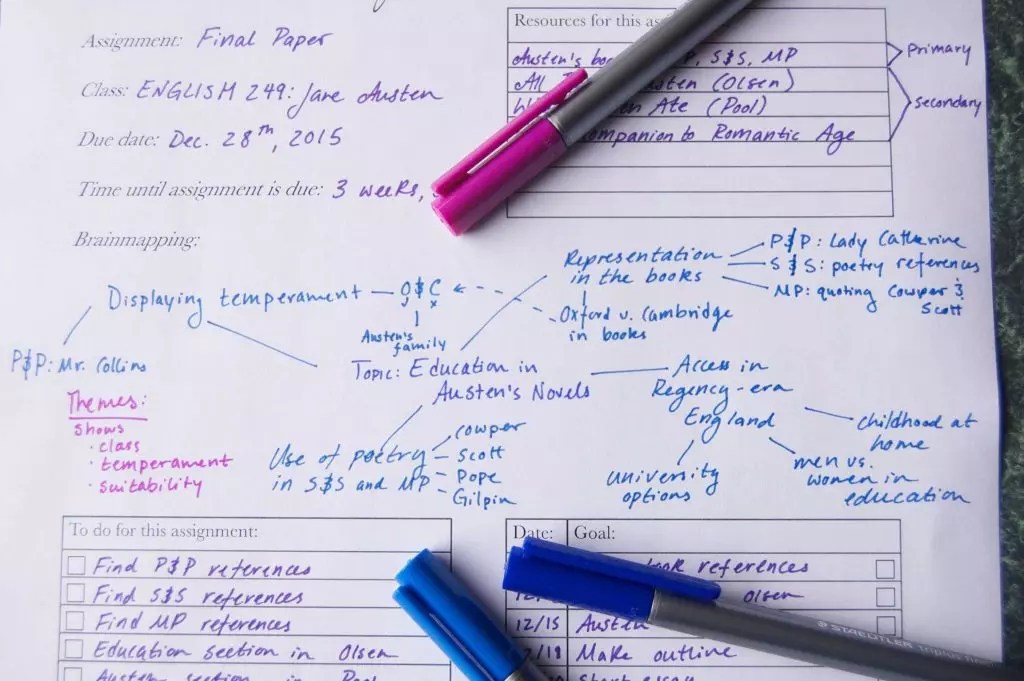 Assignment: Final Paper
Class: ENGLISH 249: Jane Austen
Due date: Dec. 28th, 2015
Time until assignment is due: 3 weeks,
Brainmapping:
Resources for this
Austen's P, S&S, MP
All (Olsen)
Ate (Pool)
Companion to Romantic Age
Primary
Secondary
Displaying temperament
O & C
Austen's
family
P&P: Mr. Collins
Representation
in the books
P&P: Lady Catherine
S&S: poetry references
MP: quoting Cowper &
Scott
Oxford v. Cambridge
in books
Topic: Education in
Austen's Novels
Access in
Regency-era
England
childhood at
home
men vs.
women in
education
university
options
Use of poetry
in S&S and MP
Cowper
Scott
Pope
Gilpin
Themes:
Shows
· class
· temperament
· suitability
To do for this assignment:
Find P&P references
Find S&S references
Find MP references
Education section in Olsen
Austen section in Pool
Date: Goal:
references
Olsen
12/15 Austen
Make outline
Start essay
STAEDTLER triplus